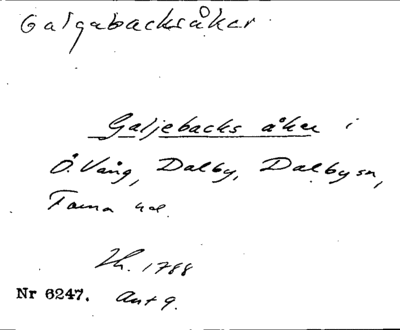 Galgabacksåker.
Galjebacks åker i
Ö. Vång, Dalby, Dalby sn,
Torna hd.
Lh. 1788
Nr 6247. Akt 9.